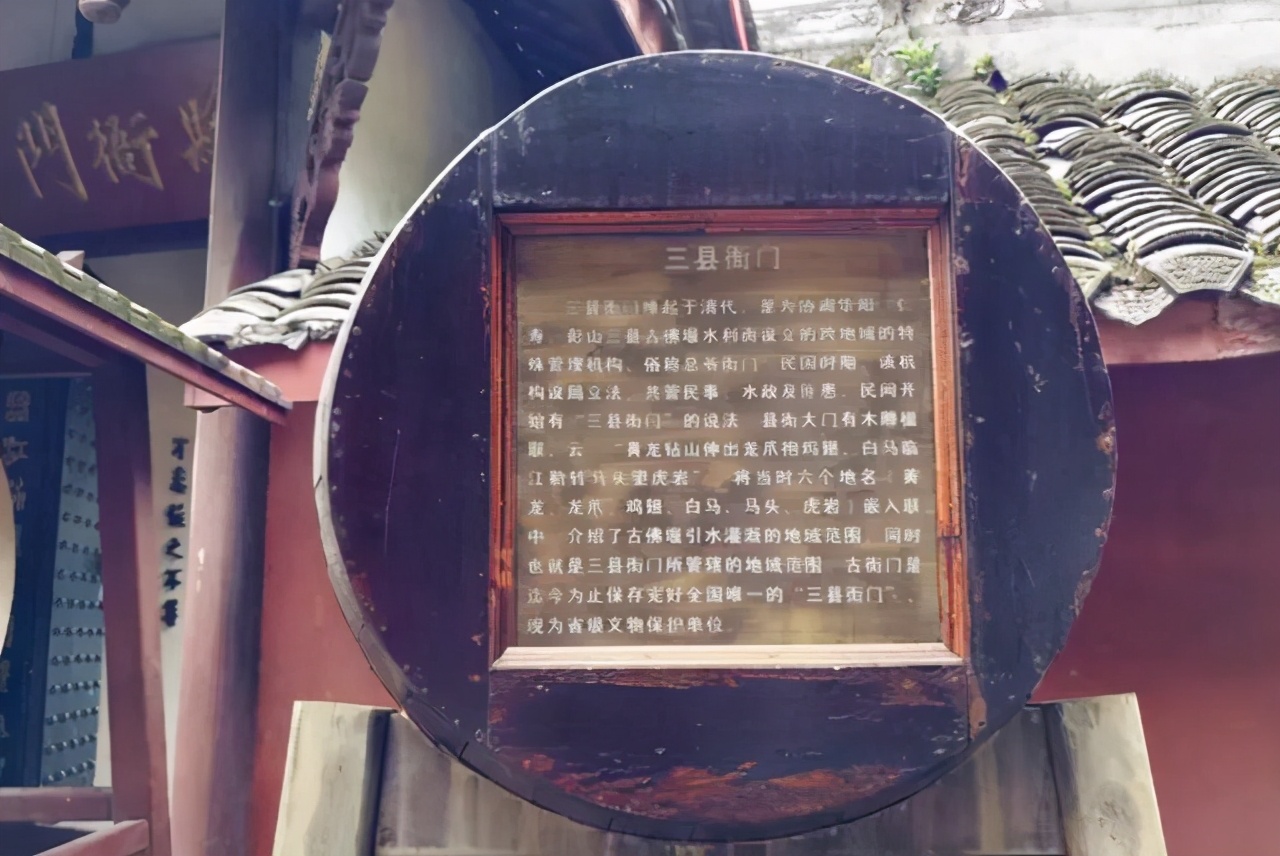 門衙縣
三县衙门
三县衙门雄起于清代，是为协调华阳、仁
寿、彭山三县古佛堰水利而设立的跨地域的特
殊管理机构、俗称总爷衙门 民国时期 该机
构设局立法 共管民事、水政及 民间并
始有“三县衙门”的说法 县衙大门有木雕楹
联，云 “黄龙钻山伸出龙爪抱鸡翅，白马临
江 转马头望虎岩” 将当时六个地名（黄
龙、龙爪、鸡翅、白马、马头、虎岩）嵌入联
中 介绍了古佛堰引水灌溉的地域范围 同时
也就是三县衙门所管辖的地域范围 古衙门是
迄今为止保存完好全国唯一的“三县衙门”、
现为省级文物保护单位
不
之不